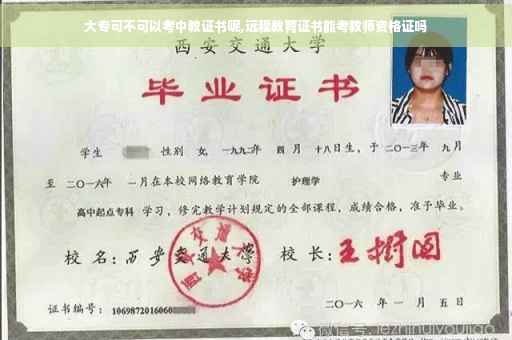 大专可不可以考中教证书呢,远程教育证书能考教师资格证吗
西安交通大学
毕业证书
学生 性别 女, 一九九二年 四 月 十八日生, 于 二〇一三年 九月
至 二〇一六年 一月在本校网络教育学院 护理学 专业
高中起点专科 学习, 修完教学计划规定的全部课程, 成绩合格, 准予毕业。
校 名: 西安交通大学 校 长: 王树国
证书编号: 1069872016060
二〇一六 年 一 月 五 日
微信号: jiezhinuiyoujiao